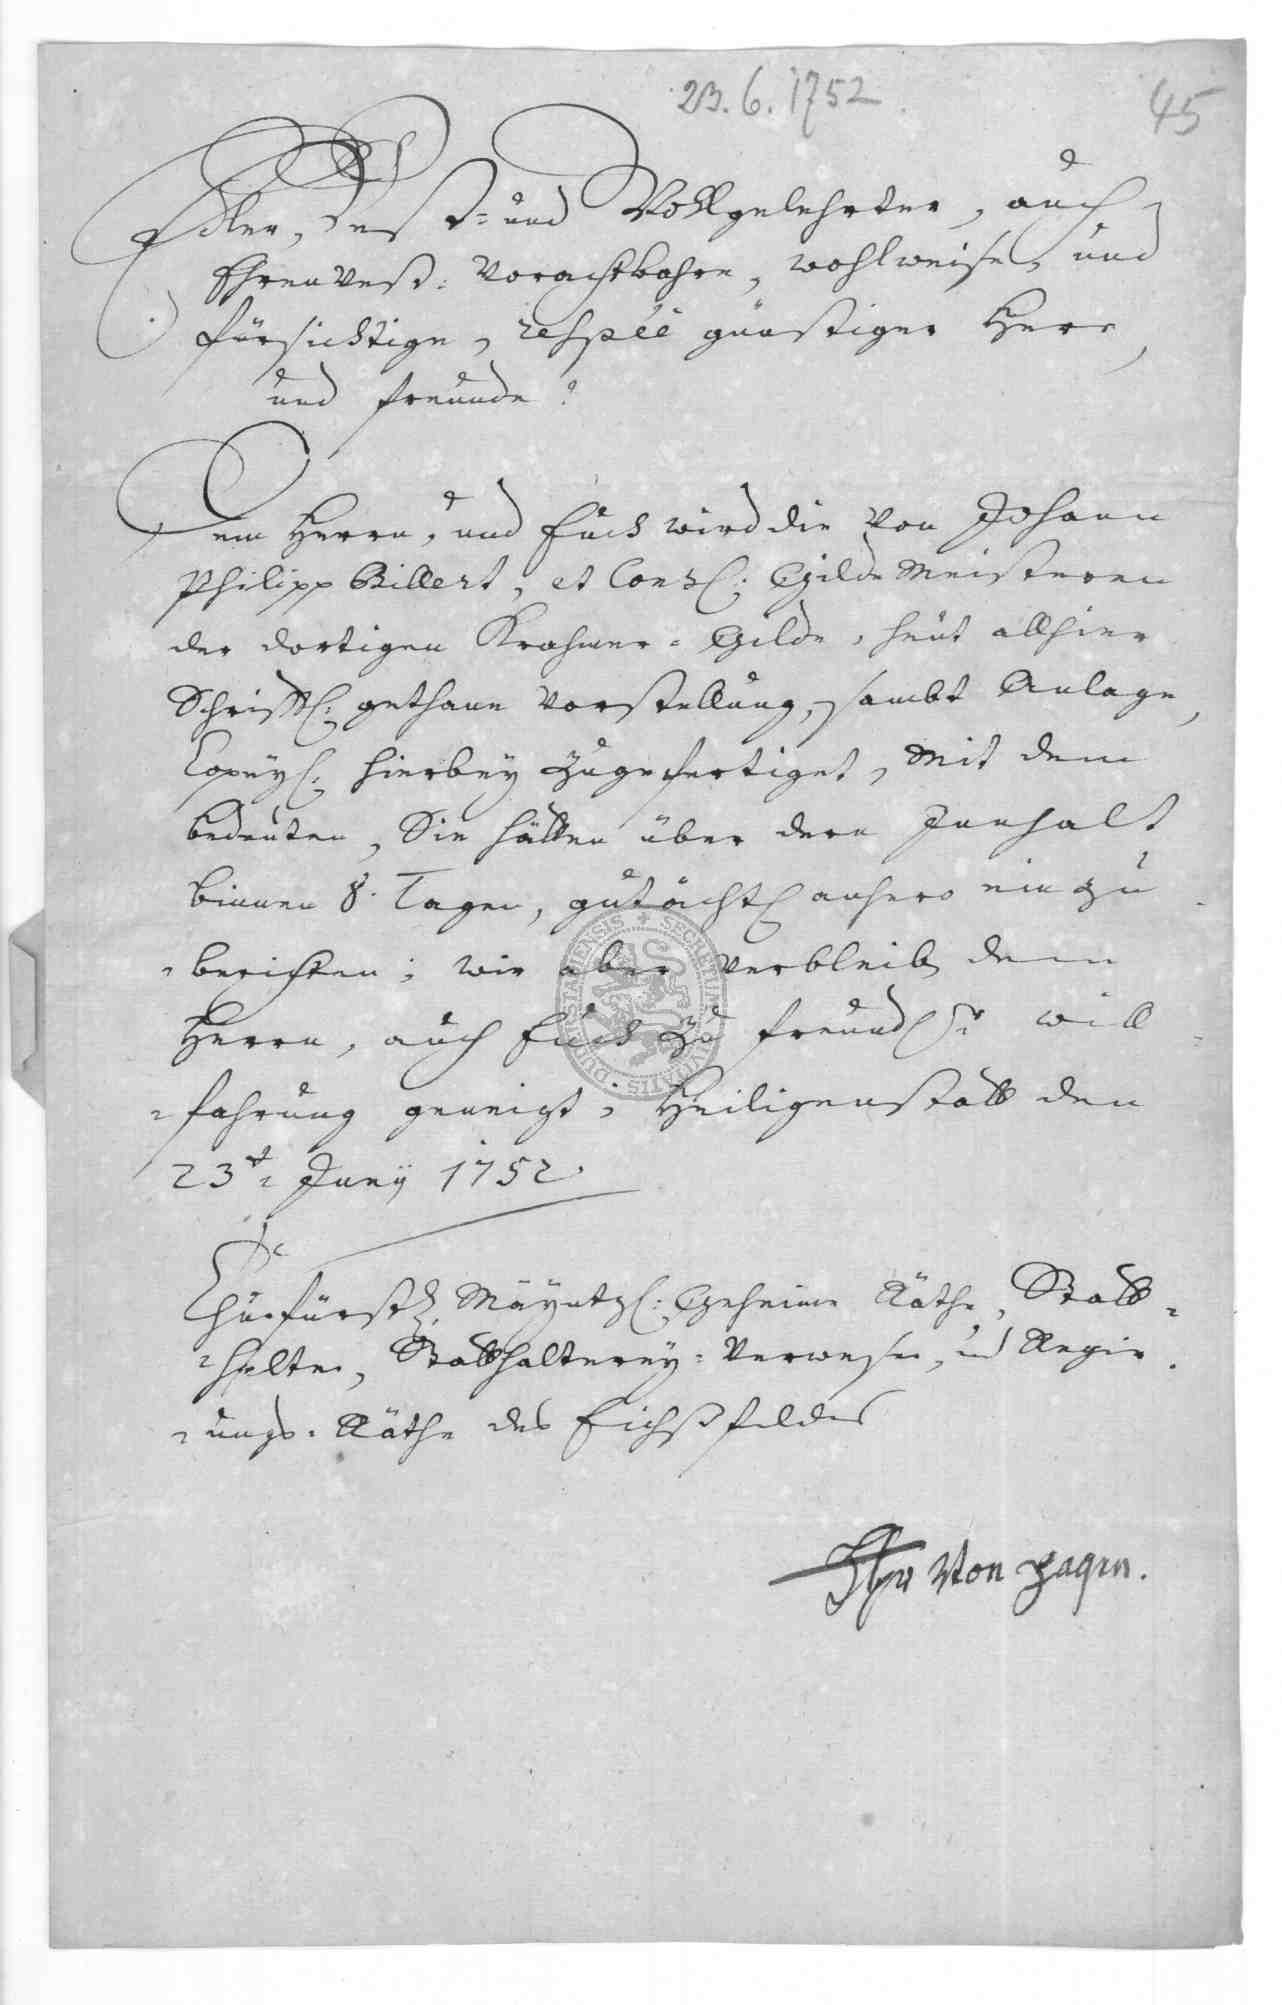 23.6.1752
45
Edler, Vest- und Wohlgelehrter, auch
Ehrenvest: Vorachtbahre, wohlweise, und
fürsichtige, respeê günstiger Herr,
und freunde!
Dem Herrn, und Euch wird die von Johann
Philipp Billert, et Cons: Gilde Meisteren
der dortigen Krahmer-Gilde, heut allhier
Schriftl: gethane Vorstellung, sambt Anlage,
Copeyl: hierbey zugefertiget, mit dem
bedeuten, Sie hätten über dern Innhalt
binnen 8. Tagen, gutächtl anhero ein zu
-berichten; wir aber verbleiben dem
Herrn, auch Euch zu freundl. will
-fahrung geneigt, Heiligenstatt den
23t Juny 1752.
Churfürstl. Mayntzl: Geheime Räthe, Statt-
-halter, Statthalterey-Verweser, und Regie-
-rungs-Räthe des Eichsfeldes
von Hagen.
SECRETUM CIVITATIS DUDERSTADIENSIS